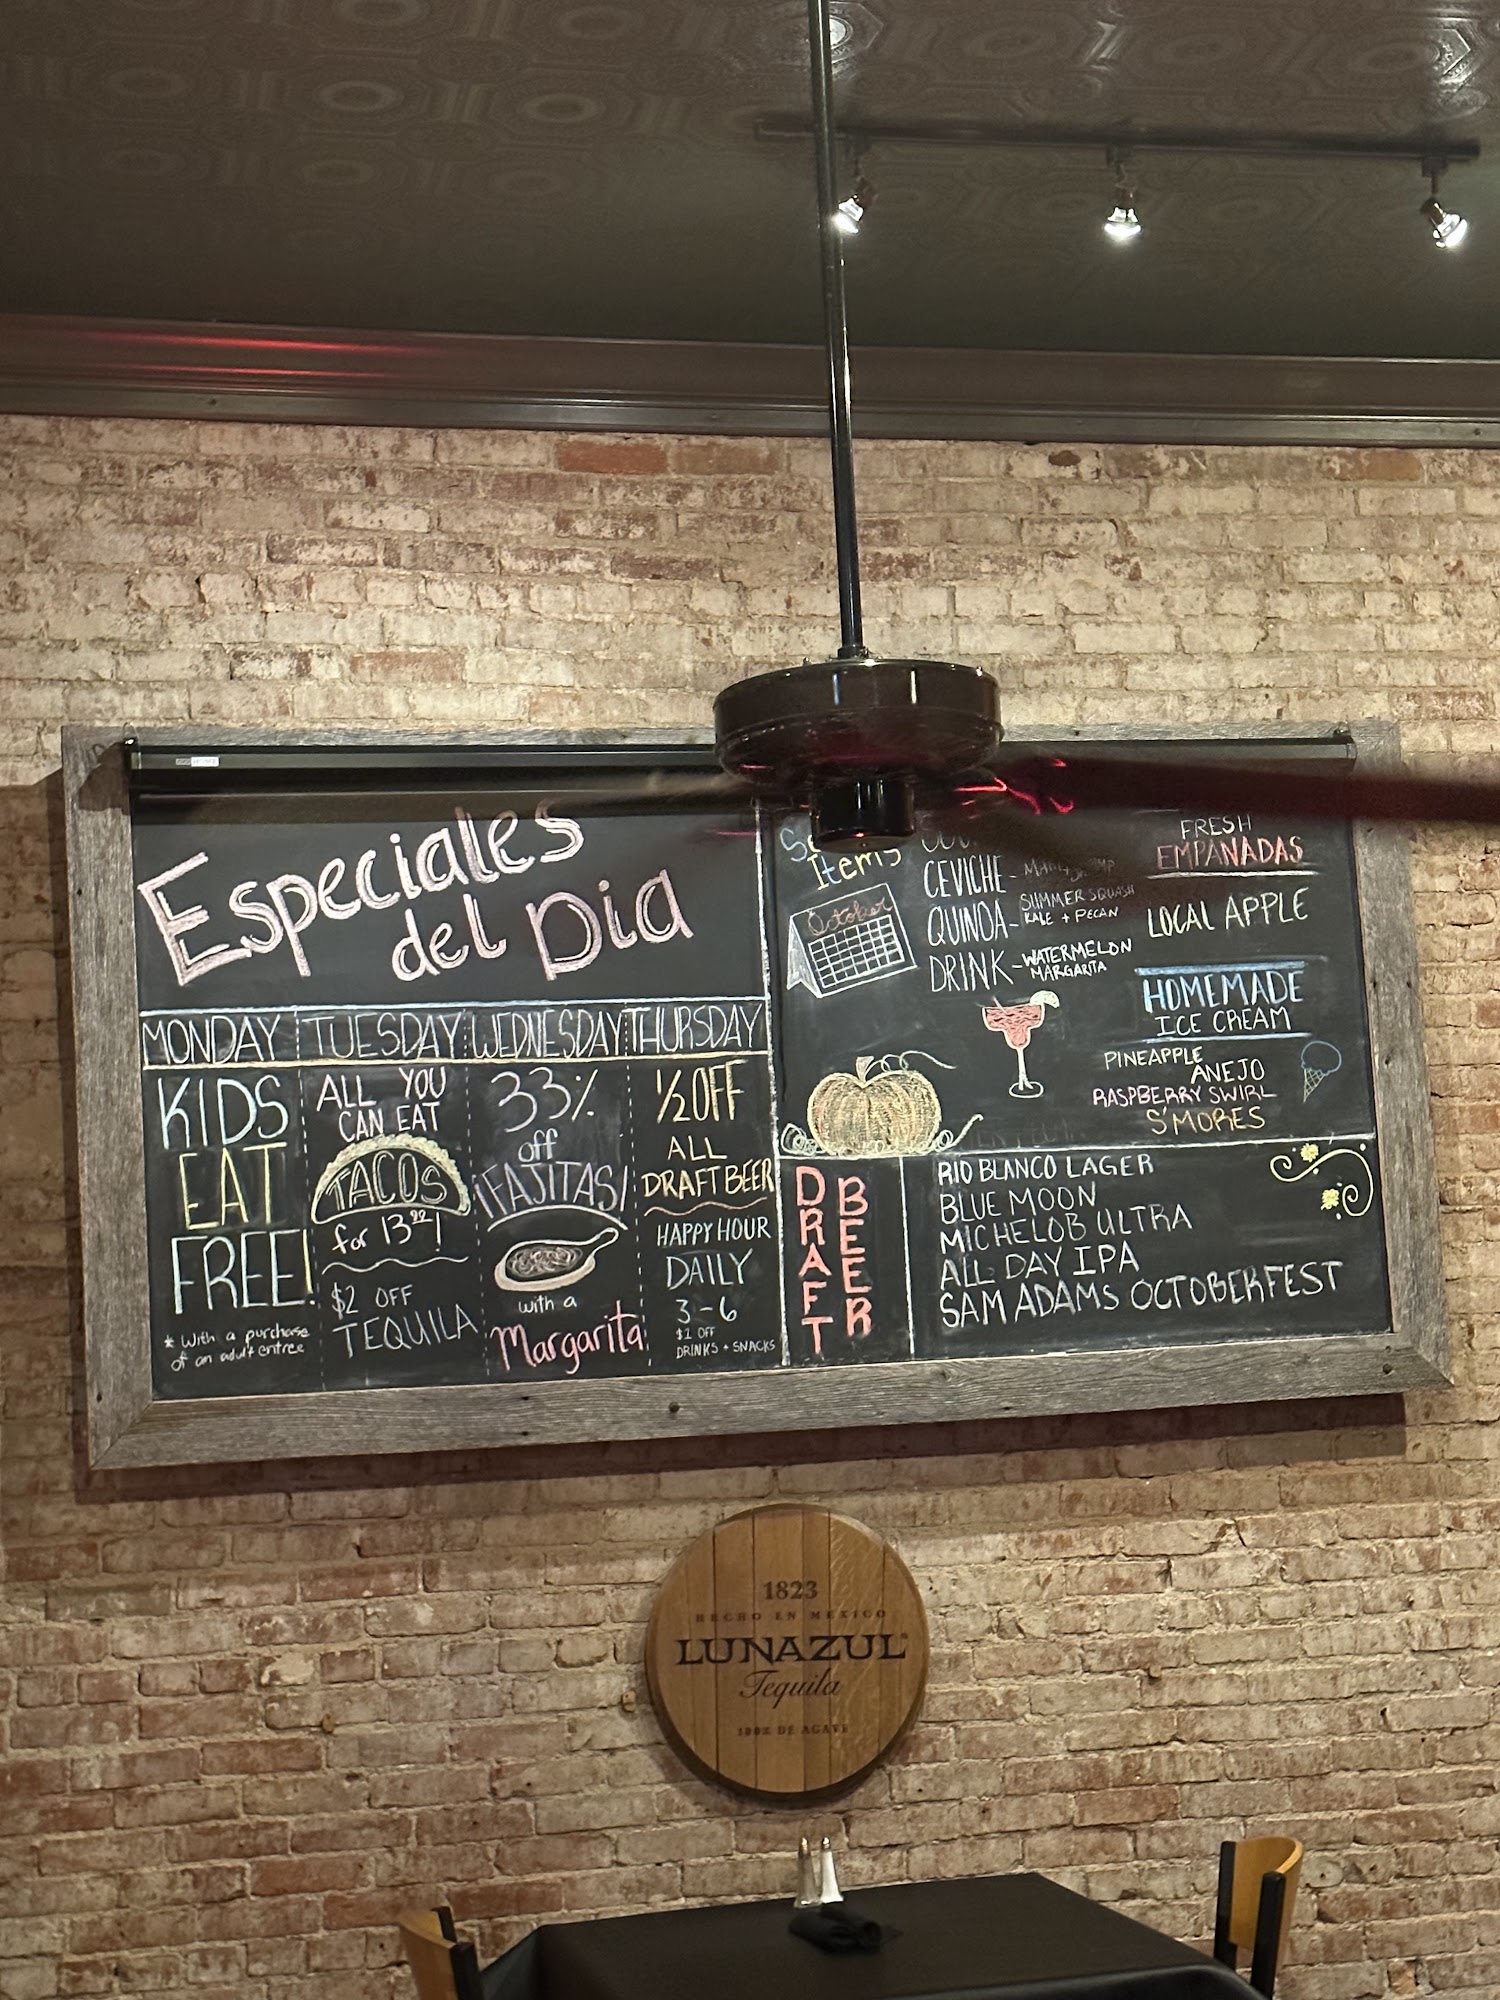 Especiales
del Dia
MONDAY
KIDS
EAT
FREE!
* With a purchase
of an adult entree
TUESDAY
ALL YOU
CAN EAT
TACOS
for 13.99!
$2 OFF
TEQUILA
WEDNESDAY
33%
off
¡FAJITAS!
with a
Margarita
THURSDAY
1/2 OFF
ALL
DRAFT BEER
HAPPY HOUR
DAILY
3-6
$1 OFF
DRINKS + SNACKS
Items
October
CEVICHE -
QUINOA - SUMMER SQUASH
KALE + PECAN
DRINK - WATERMELON
MARGARITA
FRESH
EMPANADAS
LOCAL APPLE
HOMEMADE
ICE CREAM
PINEAPPLE
ANEJO
RASPBERRY SWIRL
S'MORES
DRAFT
BEER
RIO BLANCO LAGER
BLUE MOON
MICHELOB ULTRA
ALL DAY IPA
SAM ADAMS OCTOBERFEST
1823
HECHO EN MEXICO
LUNAZUL
Tequila
100% DE AGAVE